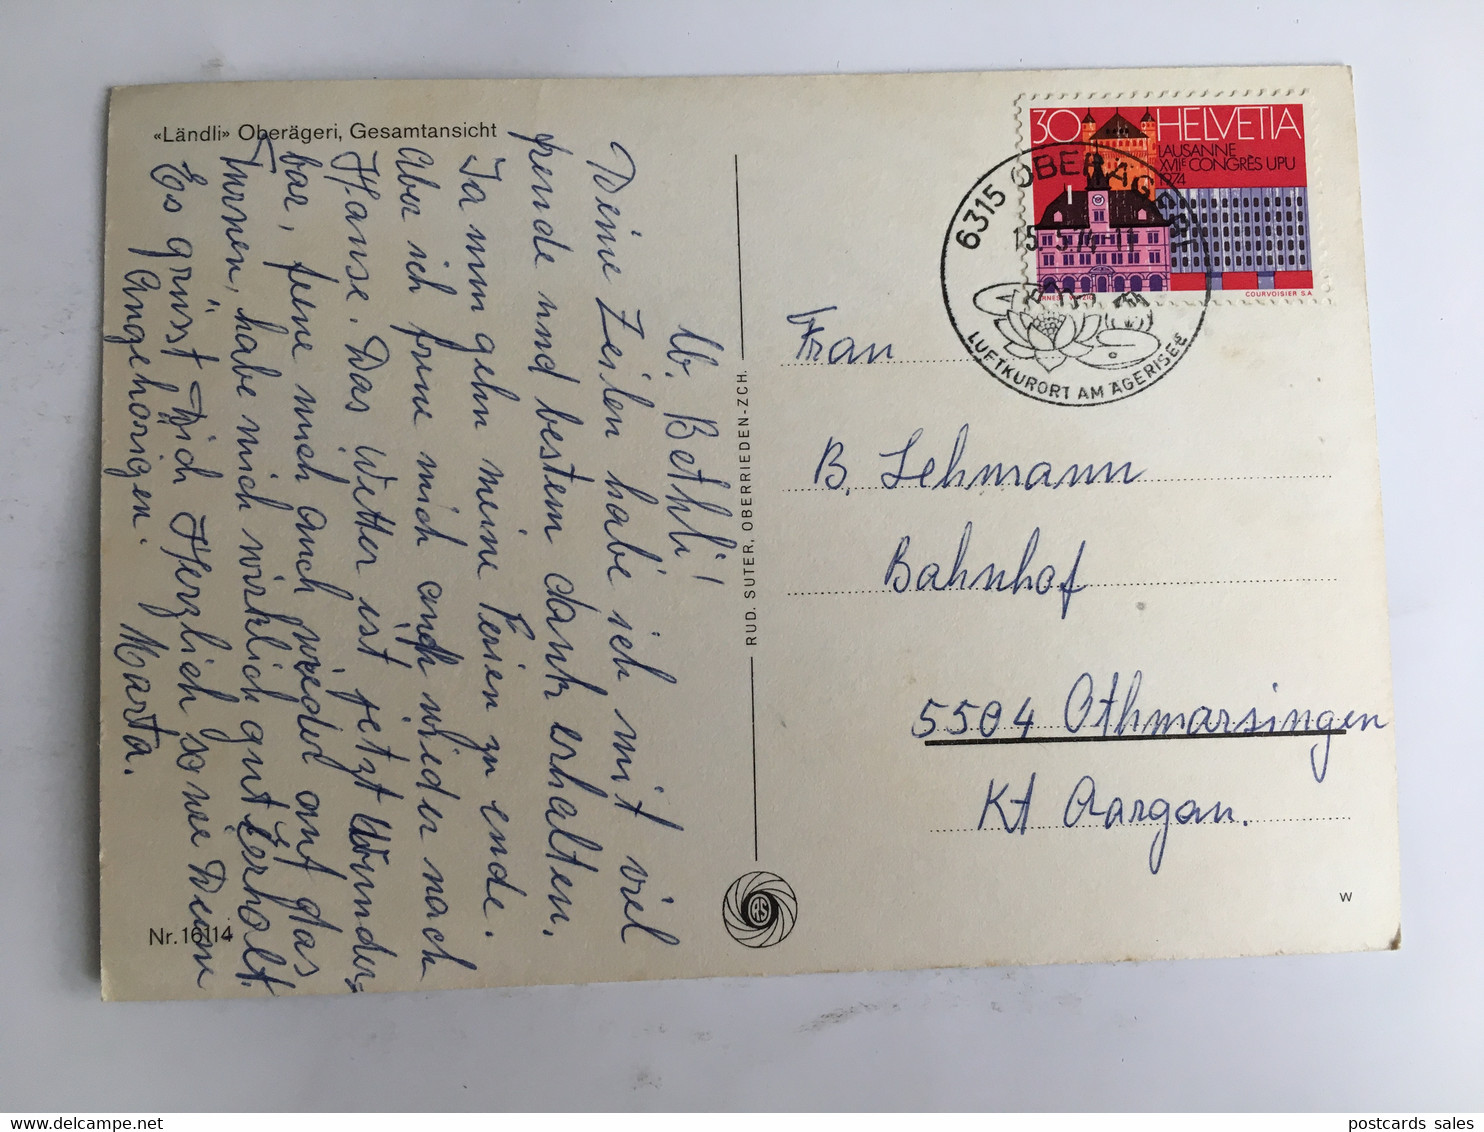 «Ländli» Oberägeri, Gesamtansicht
lb. Bethli!
Deine Zeilen habe ich mit viel
freude und bestem dank erhalten.
Ja nun gehn meine Ferien zu ende.
Aber ich freue mich auch wieder nach
Hause. Das Wetter ist jetzt Wunder-
bar, freue mich auch wieder auf das
Turnen, habe mich wirklich gut Erholt.
Es grüsst Dich Herzlich sowie Deine
Angehörigen.
Marta.
Nr. 16114
RUD. SUTER, OBERRIEDEN-ZCH.
RSA
30 HELVETIA
LAUSANNE
XVIIE CONGRÈS UPU
1974
COURVOISIER S.A.
6315 OBERÄGERI
15.5.74-11
LUFTKURORT AM ÄGERISEE
Frau
B. Lehmann
Bahnhof
5504 Othmarsingen
Kt Aargau.
W
postcards sales